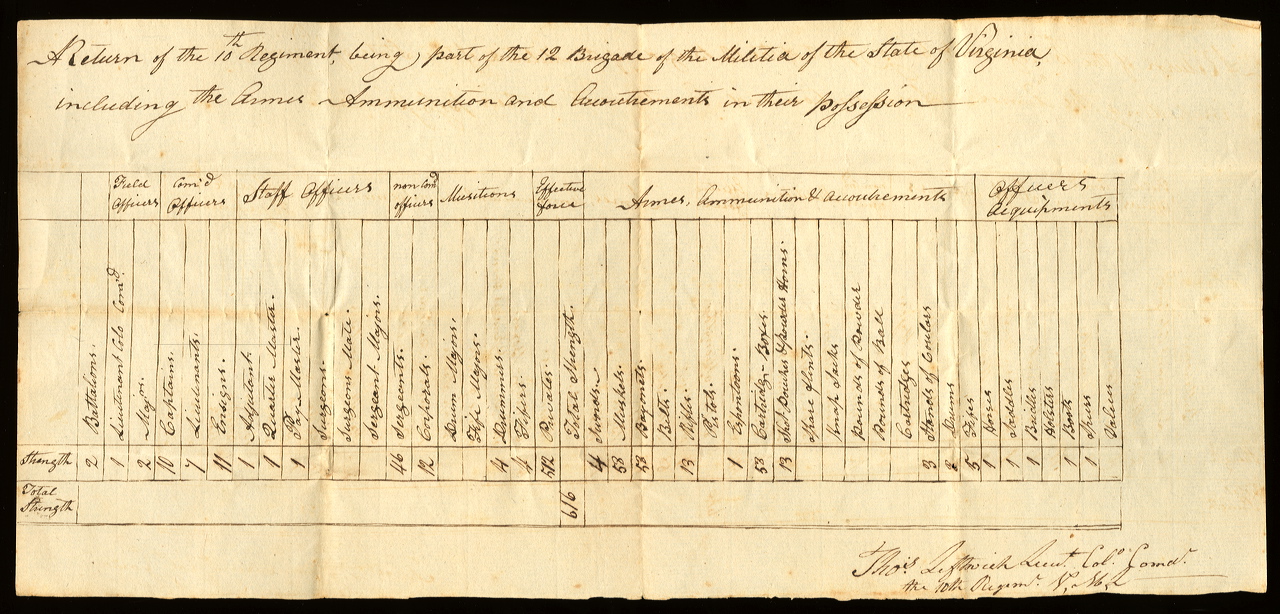 A Return of the 10th Regiment, being part of the 12 Brigade of the Militia of the State of Virginia,
including the Armes Ammunition and Accoutrements in their possession
Field Officers
Com'd Officers
Staff Officers
non Com'd officers
Musitions
Effective force
Armes, Ammunition & accoutrements
officers Acquipments
Battalions.
Lieutenant Colo Com'd
Majors.
Captains.
Lieutenants.
Ensigns.
Adjutant.
Quarter Master.
Pay Master.
Surgeons.
Surgeons Mate.
Sergeant Majors.
Sergeants.
Corporals.
Drum Majors.
Fife Majors.
Drummers.
Fifers.
Privates.
Total Strength.
Swords.
Muskets.
Bayonets.
Belts.
Rifles
Pistols.
Espontoons.
Cartridge Boxes.
Shot Pouches & powder Horns.
Spare flints.
Knap Sacks
Pounds of Powder
Pounds of Ball
Cartridges
Stands of Coulars
Drums
Fifes
Horses
Saddles
Bridles
Holsters
Boots
Spurs
Valises
Strength 2 1 2 10 7 11 1 1 1 46 12 4 4 512 4 58 58 13 1 58 13 3 5 1 1 1 1 1
Total Strength
616
Thos Leftwich Lieut. Colo. Comdt.
the 10th Regimt. V. M.